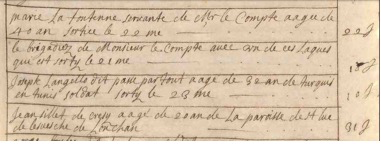 marie La fontenne servante de Mr le Compte aagee de
40 an sortie le 22 me 22 J
le brigadier de Monsieur le Compte avec un de ces Laques
qui est sorty le 21 me
Joseph Langello dit passe partout aagé de 32 an de turquis
en tunis soldat sorty le 23 me
Jean sillet de cresy aagé de 20 an de La parroisse de st luc
de levesche de 31 J